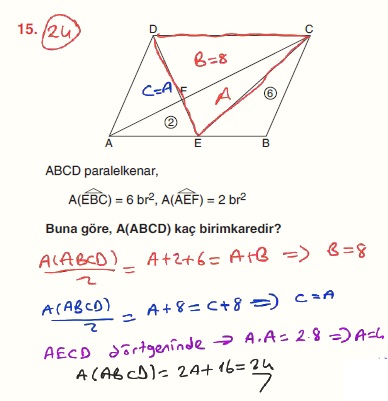 15. 24
D C
B=8
C=A F A 6
2
A E B
ABCD paralelkenar,
A(EBC) = 6 br², A(AEF) = 2 br²
Buna göre, A(ABCD) kaç birimkaredir?
A(ABCD)/2 = A+2+6 = A+B ⟹ B=8
A(ABCD)/2 = A+8 = C+8 ⟹ C=A
AECD dörtgeninde → A.A = 2.8 ⟹ A=4
A(ABCD) = 2A+16 = 24